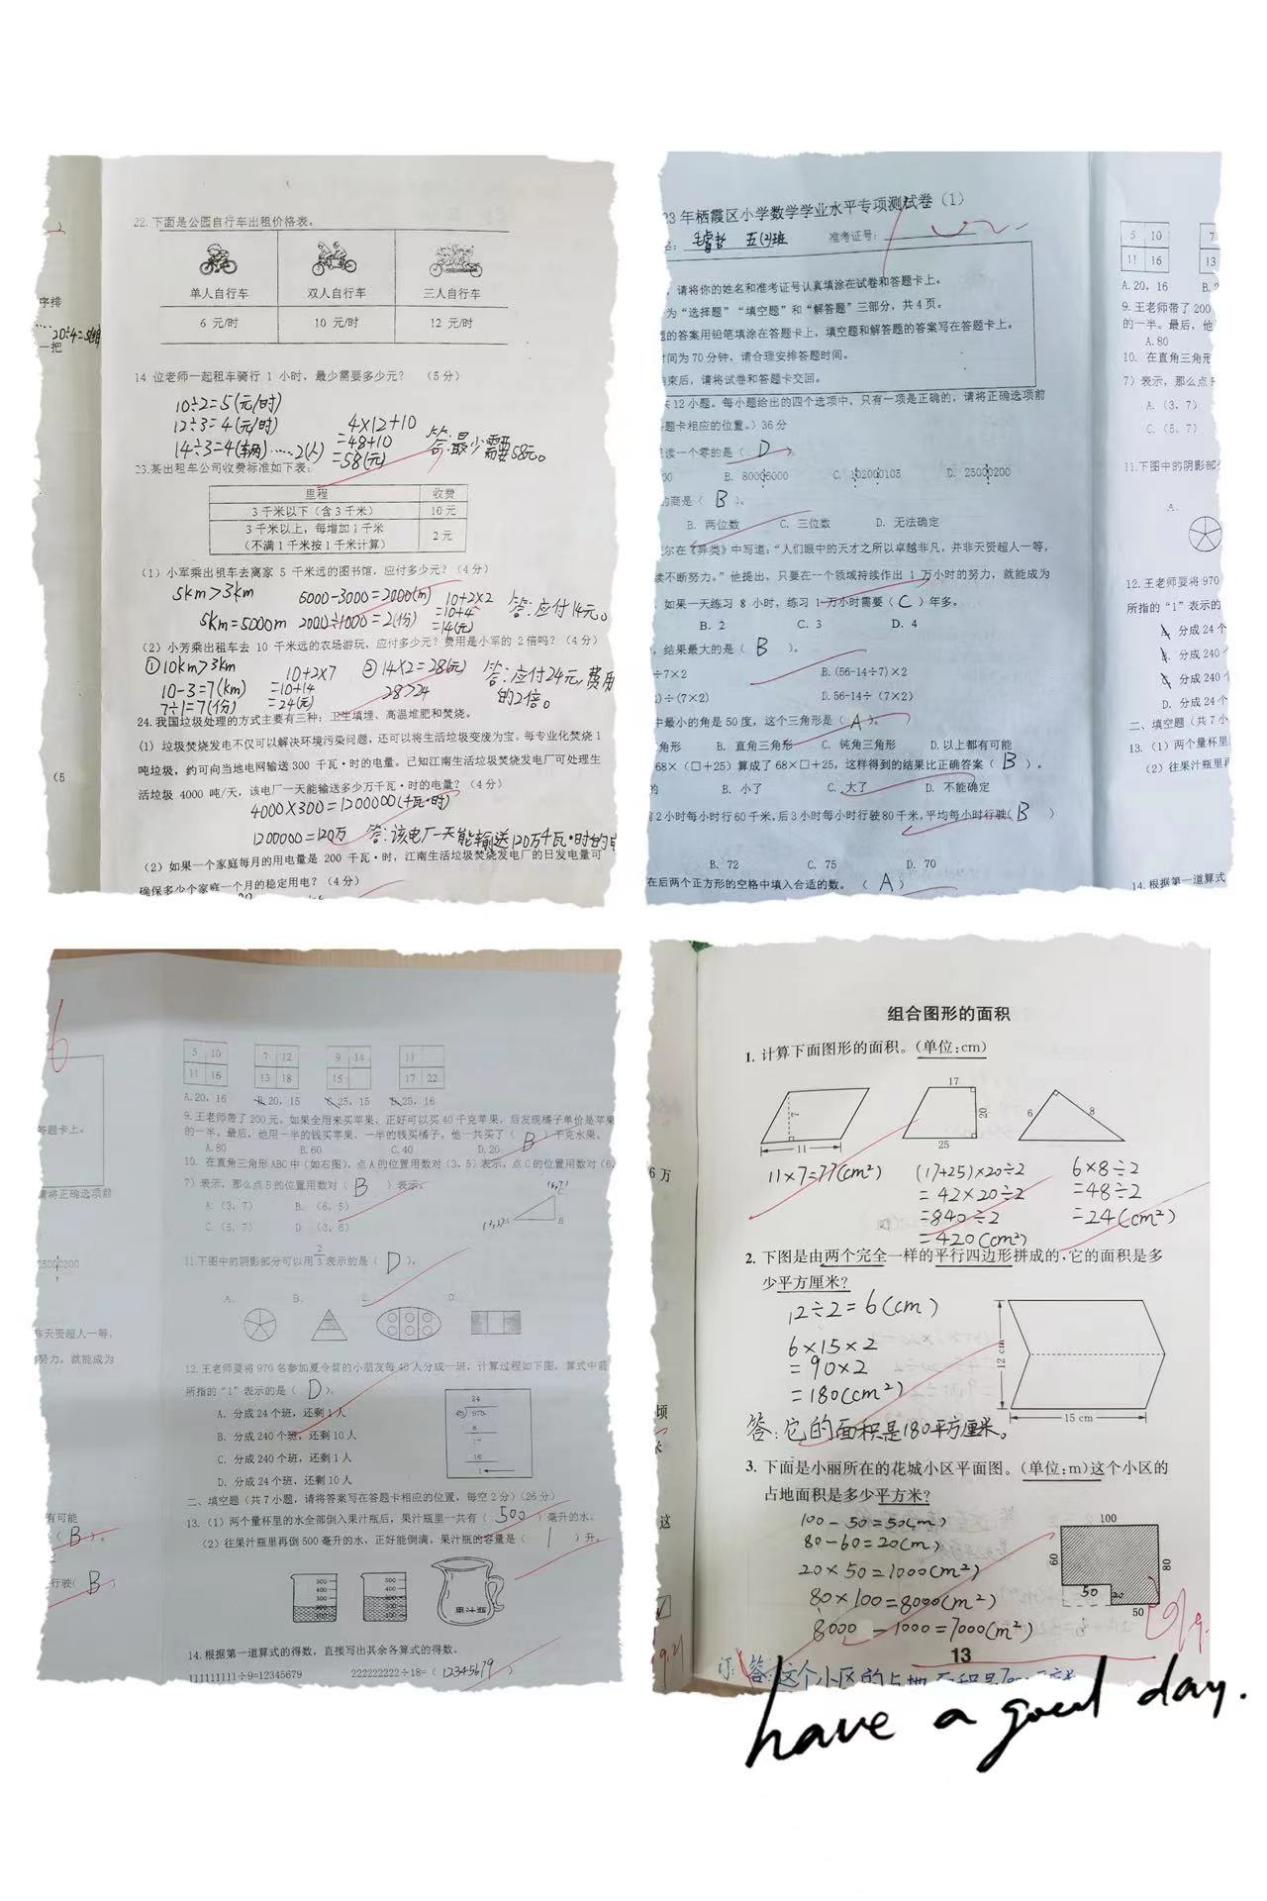 22.下面是公园自行车出租价格表。
单人自行车 双人自行车 三人自行车
6 元/时 10 元/时 12 元/时
字排
20÷4=5(组)
一把
14 位老师一起租车骑行 1 小时，最少需要多少元？ （5分）
10÷2=5(元/时)
12÷3=4(元/时)
14÷3=4(辆)……2(人)
4×12+10
=48+10
=58(元)
答:最少需要58元。
23.某出租车公司收费标准如下表：
里程 收费
3 千米以下（含 3 千米） 10 元
3 千米以上，每增加 1 千米
（不满 1 千米按 1 千米计算） 2 元
（1）小军乘出租车去离家 5 千米远的图书馆，应付多少元？（4分）
5km>3km
5km=5000m
5000-3000=2000(m)
2000÷1000=2(份)
10+2×2
=10+4
=14(元)
答:应付14元。
（2）小芳乘出租车去 10 千米远的农场游玩，应付多少元？费用是小军的 2 倍吗？（4分）
①10km>3km
10-3=7(km)
7÷1=7(份)
10+2×7
=10+14
=24(元)
②14×2=28(元)
28>24
答:应付24元,费用
的2倍。
24.我国垃圾处理的方式主要有三种：卫生填埋、高温堆肥和焚烧。
（1）垃圾焚烧发电不仅可以解决环境污染问题，还可以将生活垃圾变废为宝。每专业化焚烧 1
吨垃圾，约可向当地电网输送 300 千瓦·时的电量。已知江南生活垃圾焚烧发电厂可处理生
活垃圾 4000 吨/天，该电厂一天能输送多少万千瓦·时的电量？（4分）
4000×300=1200000(千瓦·时)
1200000=120万
答:该电厂一天能输送120万千瓦·时的电
（2）如果一个家庭每月的用电量是 200 千瓦·时，江南生活垃圾焚烧发电厂的日发电量可
确保多少个家庭一个月的稳定用电？（4分）
23 年栖霞区小学数学学业水平专项测试卷（1）
五(2)班 准考证号:
请将你的姓名和准考证号认真填涂在试卷和答题卡上。
为“选择题”“填空题”和“解答题”三部分，共4页。
的答案用铅笔填涂在答题卡上，填空题和解答题的答案写在答题卡上。
间为 70 分钟，请合理安排答题时间。
束后，请将试卷和答题卡交回。
12 小题。每小题给出的四个选项中，只有一项是正确的，请将正确选项前
题卡相应的位置。）36 分
读一个零的是（ D ）
00 B. 80006000 C. 102000105 D. 25000200
的商是（ B ）。
B. 两位数 C. 三位数 D. 无法确定
尔在《异类》中写道：“人们眼中的天才之所以卓越非凡，并非天资超人一等，
续不断努力。”他提出，只要在一个领域持续作出 1 万小时的努力，就能成为
如果一天练习 8 小时，练习 1 万小时需要（ C ）年多。
B. 2 C. 3 D. 4
，结果最大的是（ B ）。
÷7×2 B. (56-14÷7)×2
)÷(7×2) D. 56-14÷（7×2）
中最小的角是 50 度，这个三角形是（ A ）。
角形 B. 直角三角形 C. 钝角三角形 D. 以上都有可能
68×（□+25）算成了 68×□+25，这样得到的结果比正确答案（ B ）。
的 B. 小了 C. 大了 D. 不能确定
2 小时每小时行 60 千米，后 3 小时每小时行驶 80 千米，平均每小时行驶（ B ）
B. 72 C. 75 D. 70
在后两个正方形的空格中填入合适的数。（ A ）
5 10 7
11 16 13
A. 20，16
9.王老师带了 200
的一半。最后，他
A. 80
10. 在直角三角形
7）表示，那么点
A.（3，7）
C.（5，7）
11.下图中的阴影部
A.
12. 王老师要将 970
所指的“1”表示的
A. 分成 24 个
分成 240
分成 240
D. 分成 24 个
二、填空题（共 7 小
13.（1）两个量杯里
（2）往果汁瓶里再
14. 根据第一道算式
6
答题卡上。
请将正确选项前
天资超人一等，
努力，就能成为
有可能
（ B ）。
行驶（ B ）
5 10 7 12 9 14 11
11 16 13 18 15 17 22
A. 20，16 B. 20，15 C. 25，15 D. 25，16
9.王老师带了 200 元，如果全用来买苹果，正好可以买 40 千克苹果，后发现橘子单价是苹果
的一半。最后，他用一半的钱买苹果，一半的钱买橘子。他一共买了（ B ）千克水果。
A. 80 B. 60 C. 40 D. 20
10. 在直角三角形 ABC 中（如右图），点 A 的位置用数对（3，5）表示，点 C 的位置用数对（6，
7）表示，那么点 B 的位置用数对（ B ）表示。
A.（3，7） B.（6，5）
C.（5，7） D.（3，6）
11.下图中的阴影部分可以用 2/3 表示的是（ D ）。
A. B. C. D.
12. 王老师要将 970 名参加夏令营的小朋友每 40 人分成一班，计算过程如下图，算式中箭
所指的“1”表示的是（ D ）。
A. 分成 24 个班，还剩 1 人
B. 分成 240 个班，还剩 10 人
C. 分成 240 个班，还剩 1 人
D. 分成 24 个班，还剩 10 人
24
40 970
8
17
16
1
二、填空题（共 7 小题，请将答案写在答题卡相应的位置，每空 2 分）（26 分）
13.（1）两个量杯里的水全部倒入果汁瓶后，果汁瓶里一共有（ 500 ）毫升的水。
（2）往果汁瓶里再倒 500 毫升的水，正好能倒满。果汁瓶的容量是（ 1 ）升。
500
400
300
200
100
500
400
300
200
100
果汁瓶
14. 根据第一道算式的得数，直接写出其余各算式的得数。
111111111÷9=12345679 222222222÷18=（ 12345679 ）
组合图形的面积
1. 计算下面图形的面积。(单位:cm)
7 11
17 20 25
6 8
11×7=77(cm²)
(17+25)×20÷2
=42×20÷2
=840÷2
=420(cm²)
6×8÷2
=48÷2
=24(cm²)
6 万
2. 下图是由两个完全一样的平行四边形拼成的,它的面积是多
少平方厘米?
12÷2=6(cm)
6×15×2
=90×2
=180(cm²)
答:它的面积是180平方厘米。
12 cm
15 cm
3. 下面是小丽所在的花城小区平面图。(单位:m)这个小区的
占地面积是多少平方米?
100-50=50(m)
80-60=20(m)
20×50=1000(m²)
80×100=8000(m²)
8000-1000=7000(m²)
100
60 80
50 20
50
13
订: 答:这个小区的占地面积是7000平方米
have a good day.